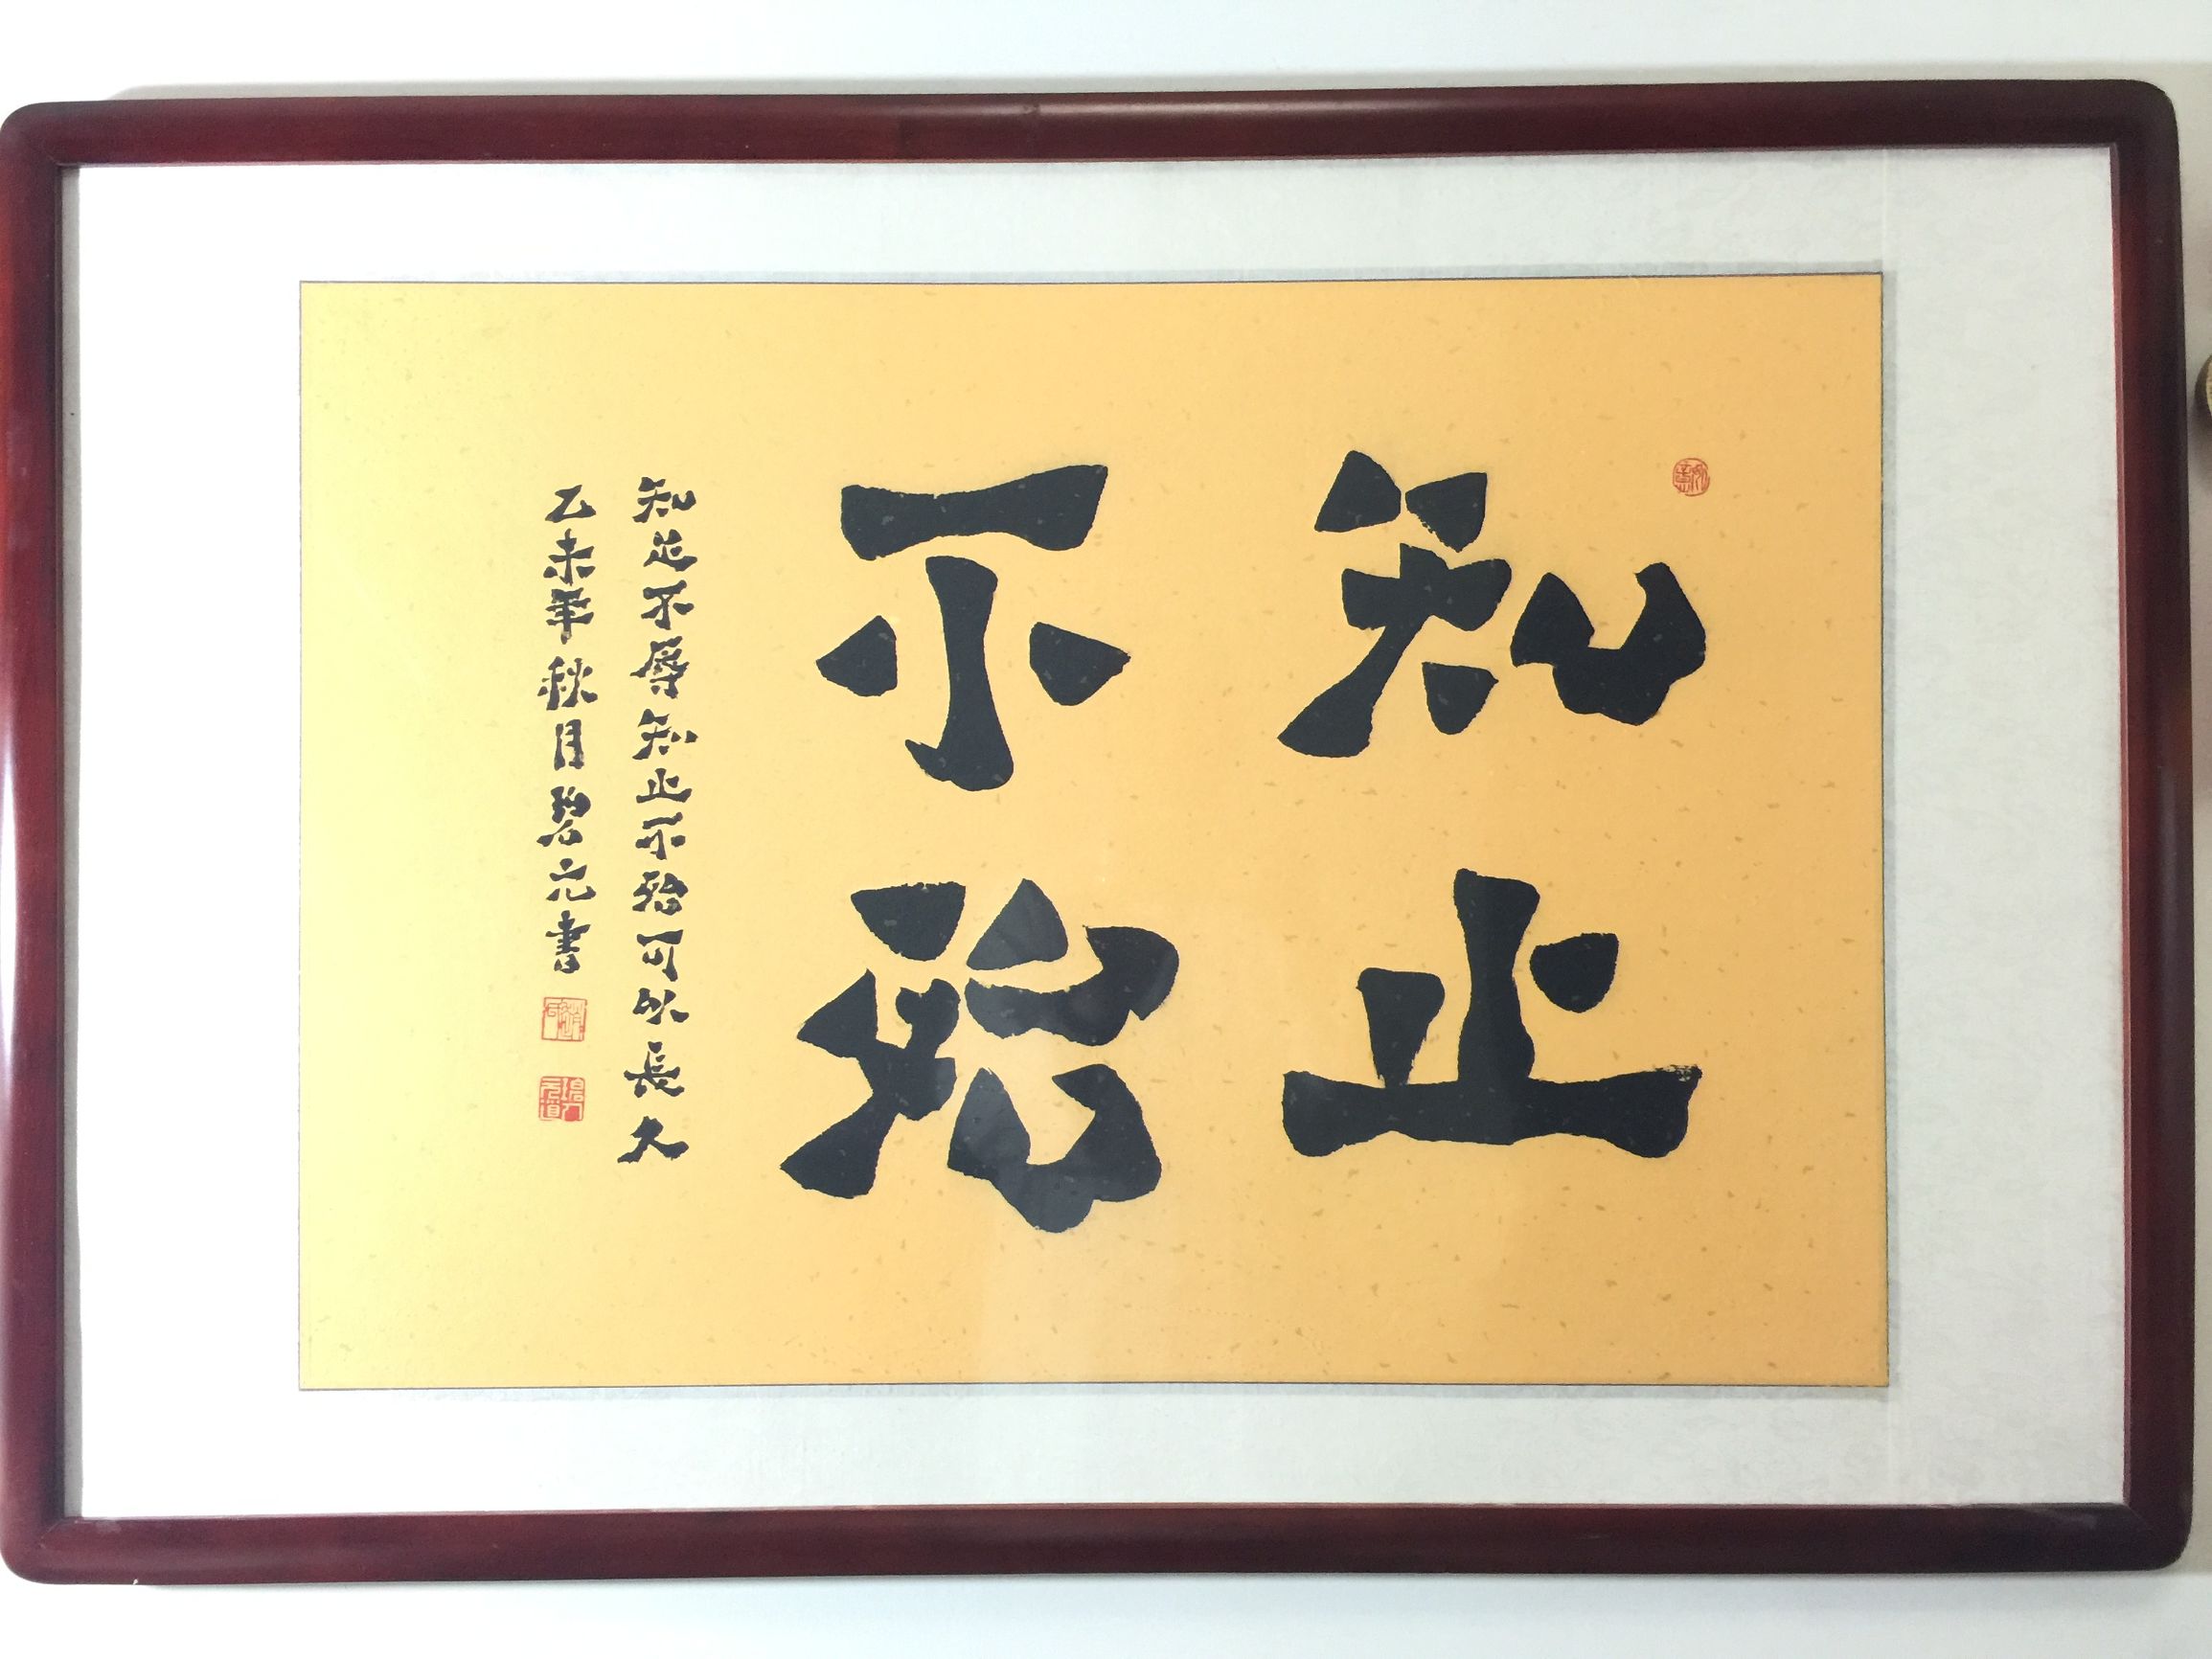 知止
不殆
知足不辱知止不殆可以長久
乙未年秋月碧元書